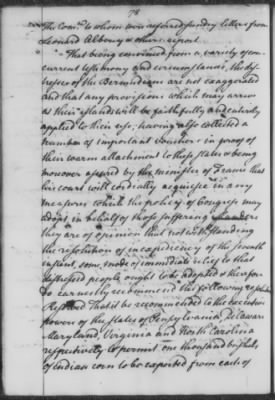 78
The Comee. to whom were referred sundry letters from
Leonard Albouy & others report.
"That being convinced from a variety of con-
current testimony and circumstances, the dis-
tresses of the Bermudians are not exaggerated
and that any provisions which may arrive
at their islands will be faithfully and entirely
applied to their use; having also collected a
number of important vouchers in proof of
their warm attachment to these states & being
moreover assured by the minister of France that
his court will cordially acquiesce in any
measures which the policy of Congress may
adopt in behalf of those suffering islanders
they are of opinion that notwithstanding
the resolution of inexpediency of the seventh
instant, some mode of immediate relief to that
distressed people ought to be adopted & therefore
do earnestly recommend the following resolution
Resolved That it be recommended to the executive
powers of the states of Pensylvania, Delaware
Maryland, Virginia and North Carolina
respectively to permit one thousand bushels
of indian corn to be exported from each of